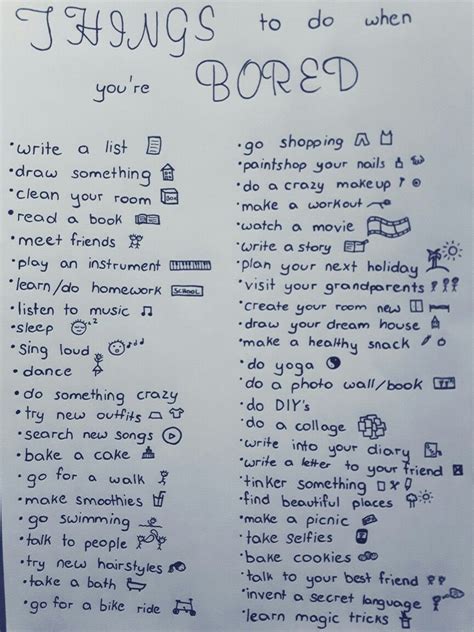 THINGS to do when
you're BORED
• write a list
• draw something
• clean your room
• read a book
• meet friends
• play an instrument
• learn/do homework SCHOOL
• listen to music
• sleep zz
• sing loud
• dance
• do something crazy
• try new outfits
• search new songs
• bake a cake
• go for a walk
• make smoothies
• go swimming
• talk to people
• try new hairstyles
• take a bath
• go for a bike ride
• go shopping
• paintshop your nails
• do a crazy makeup
• make a workout
• watch a movie
• write a story
• plan your next holiday
• visit your grandparents
• create your room new
• draw your dream house
• make a healthy snack
• do yoga
• do a photo wall/book
• do DIY's
• do a collage
• write into your diary
• write a letter to your friend
• tinker something
• find beautiful places
• make a picnic
• take selfies
• bake cookies
• talk to your best friend
• invent a secret language
• learn magic tricks